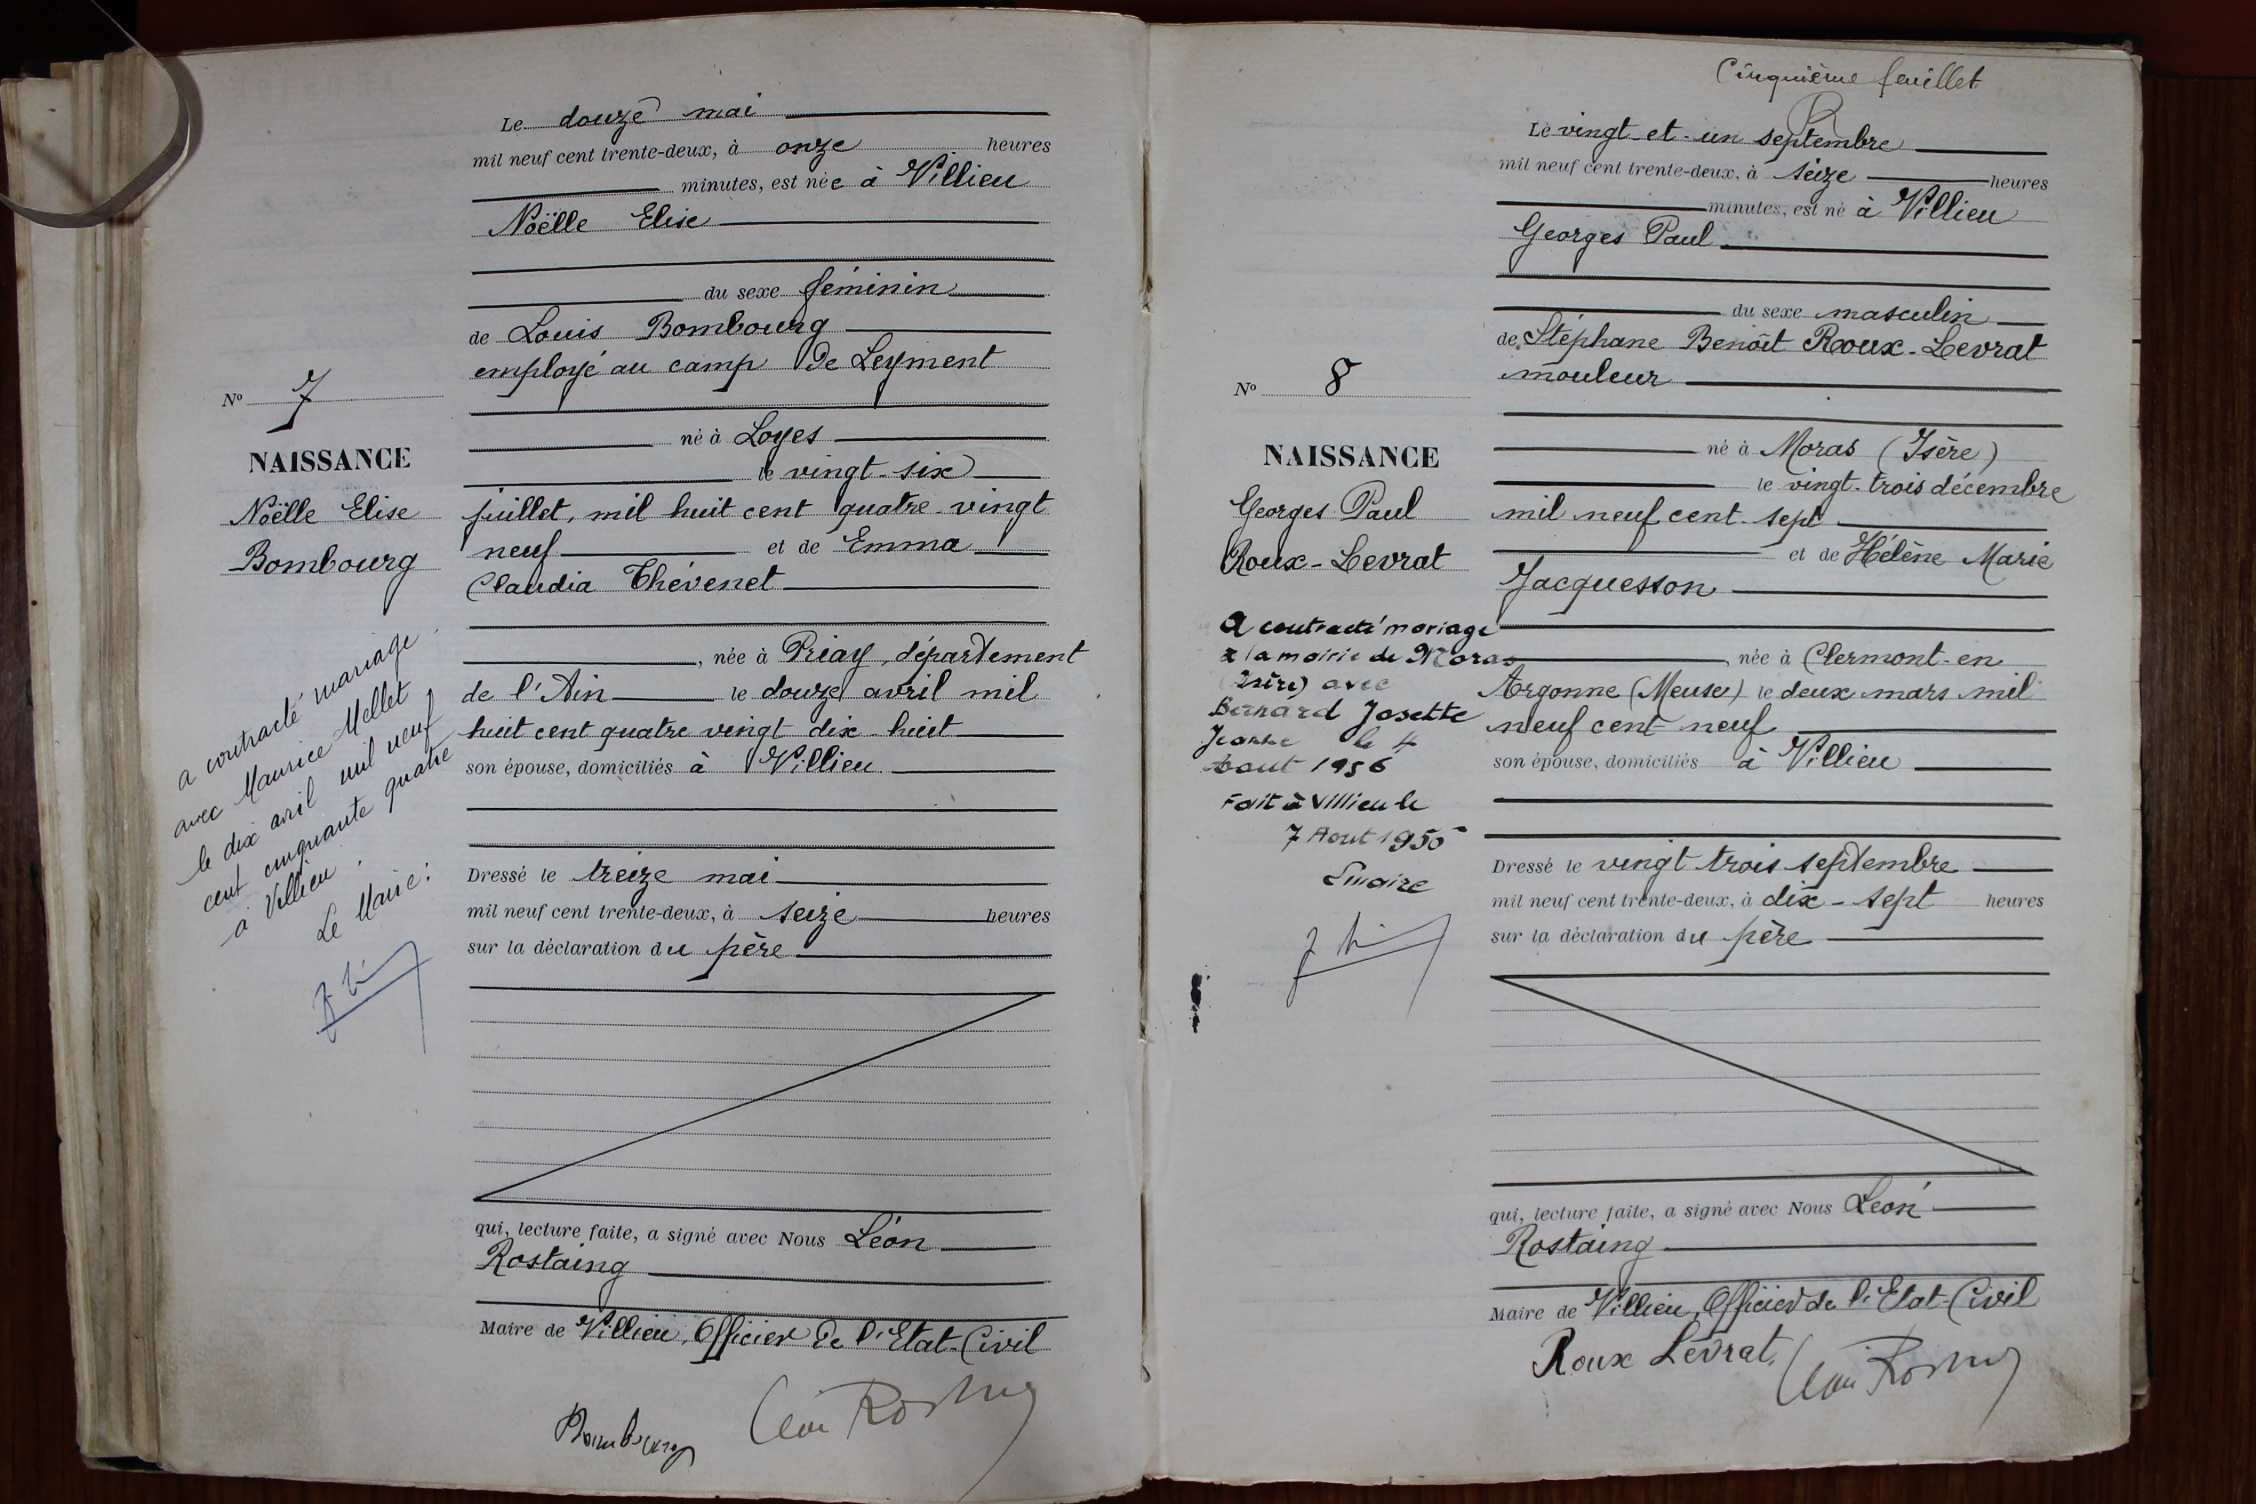 Le douze mai
mil neuf cent trente-deux, à onze heures
minutes, est née à Villieu
Noëlle Elise
du sexe féminin
de Louis Bombourg
employé au camp de Leyment
né à Loyes
le vingt-six
juillet, mil huit cent quatre-vingt
neuf et de Emma
Claudia Thévenet
, née à Priay, département
de l'Ain le douze avril mil
huit cent quatre vingt dix-huit
son épouse, domiciliés à Villieu
Dressé le treize mai
mil neuf cent trente-deux, à seize heures
sur la déclaration du père
qui, lecture faite, a signé avec Nous Léon
Rostaing
Maire de Villieu, Officier de l'Etat-Civil
Bombourg
Léon Rostaing
No 7
NAISSANCE
Noëlle Elise
Bombourg
a contracté mariage
avec Maurice Mellet
le dix avril mil neuf
cent cinquante quatre
à Villieu.
Le Maire:
Cinquième feuillet
Le vingt-et-un septembre
mil neuf cent trente-deux, à seize heures
minutes, est né à Villieu
Georges Paul
du sexe masculin
de Stéphane Benoît Roux-Levrat
mouleur
né à Moras (Isère)
le vingt-trois décembre
mil neuf cent-sept
et de Hélène Marie
Jacquesson
, née à Clermont-en
Argonne (Meuse) le deux mars mil
neuf cent-neuf
son épouse, domiciliés à Villieu
Dressé le vingt-trois septembre
mil neuf cent trente-deux, à dix-sept heures
sur la déclaration du père
qui, lecture faite, a signé avec Nous Léon
Rostaing
Maire de Villieu, Officier de l'Etat-Civil
Roux Levrat, Léon Rostaing
No 8
NAISSANCE
Georges Paul
Roux-Levrat
A contracté mariage
à la mairie de Moras
(Isère) avec
Bernard Josette
Jeanne le 4
Aout 1956
Fait à Villieu le
7 Aout 1956
Le maire